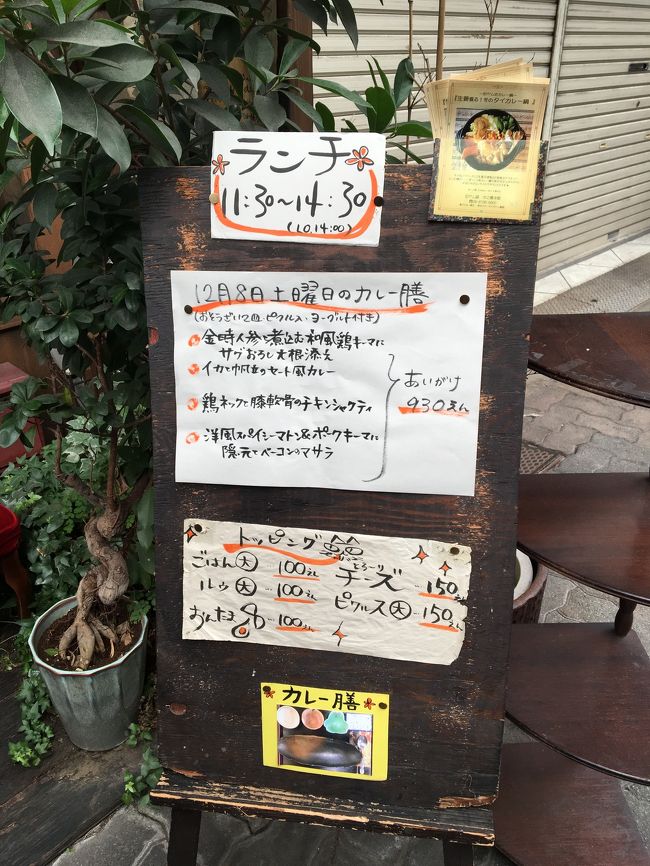 ランチ
11:30〜14:30
(L.O.14:00)
『生胡椒香る!冬のタイカレー鍋』
12月8日土曜日のカレー膳
(おそうざい2皿・ピクルス・ヨーグルト付き)
金時人参と煮込む和風鶏キーマに
サグおろし大根添え
イカと帆立のセート風カレー
鶏ネックと膝軟骨のチキンシャクティ
洋風スパイシーマトン&ポークキーマに
隠元とベーコンのマサラ
あいがけ
930えん
トッピング
ごはん大…100えん
ルゥ大…100えん
おんたま…100えん
とろーり
チーズ…150えん
ピクルス大…150えん
カレー膳